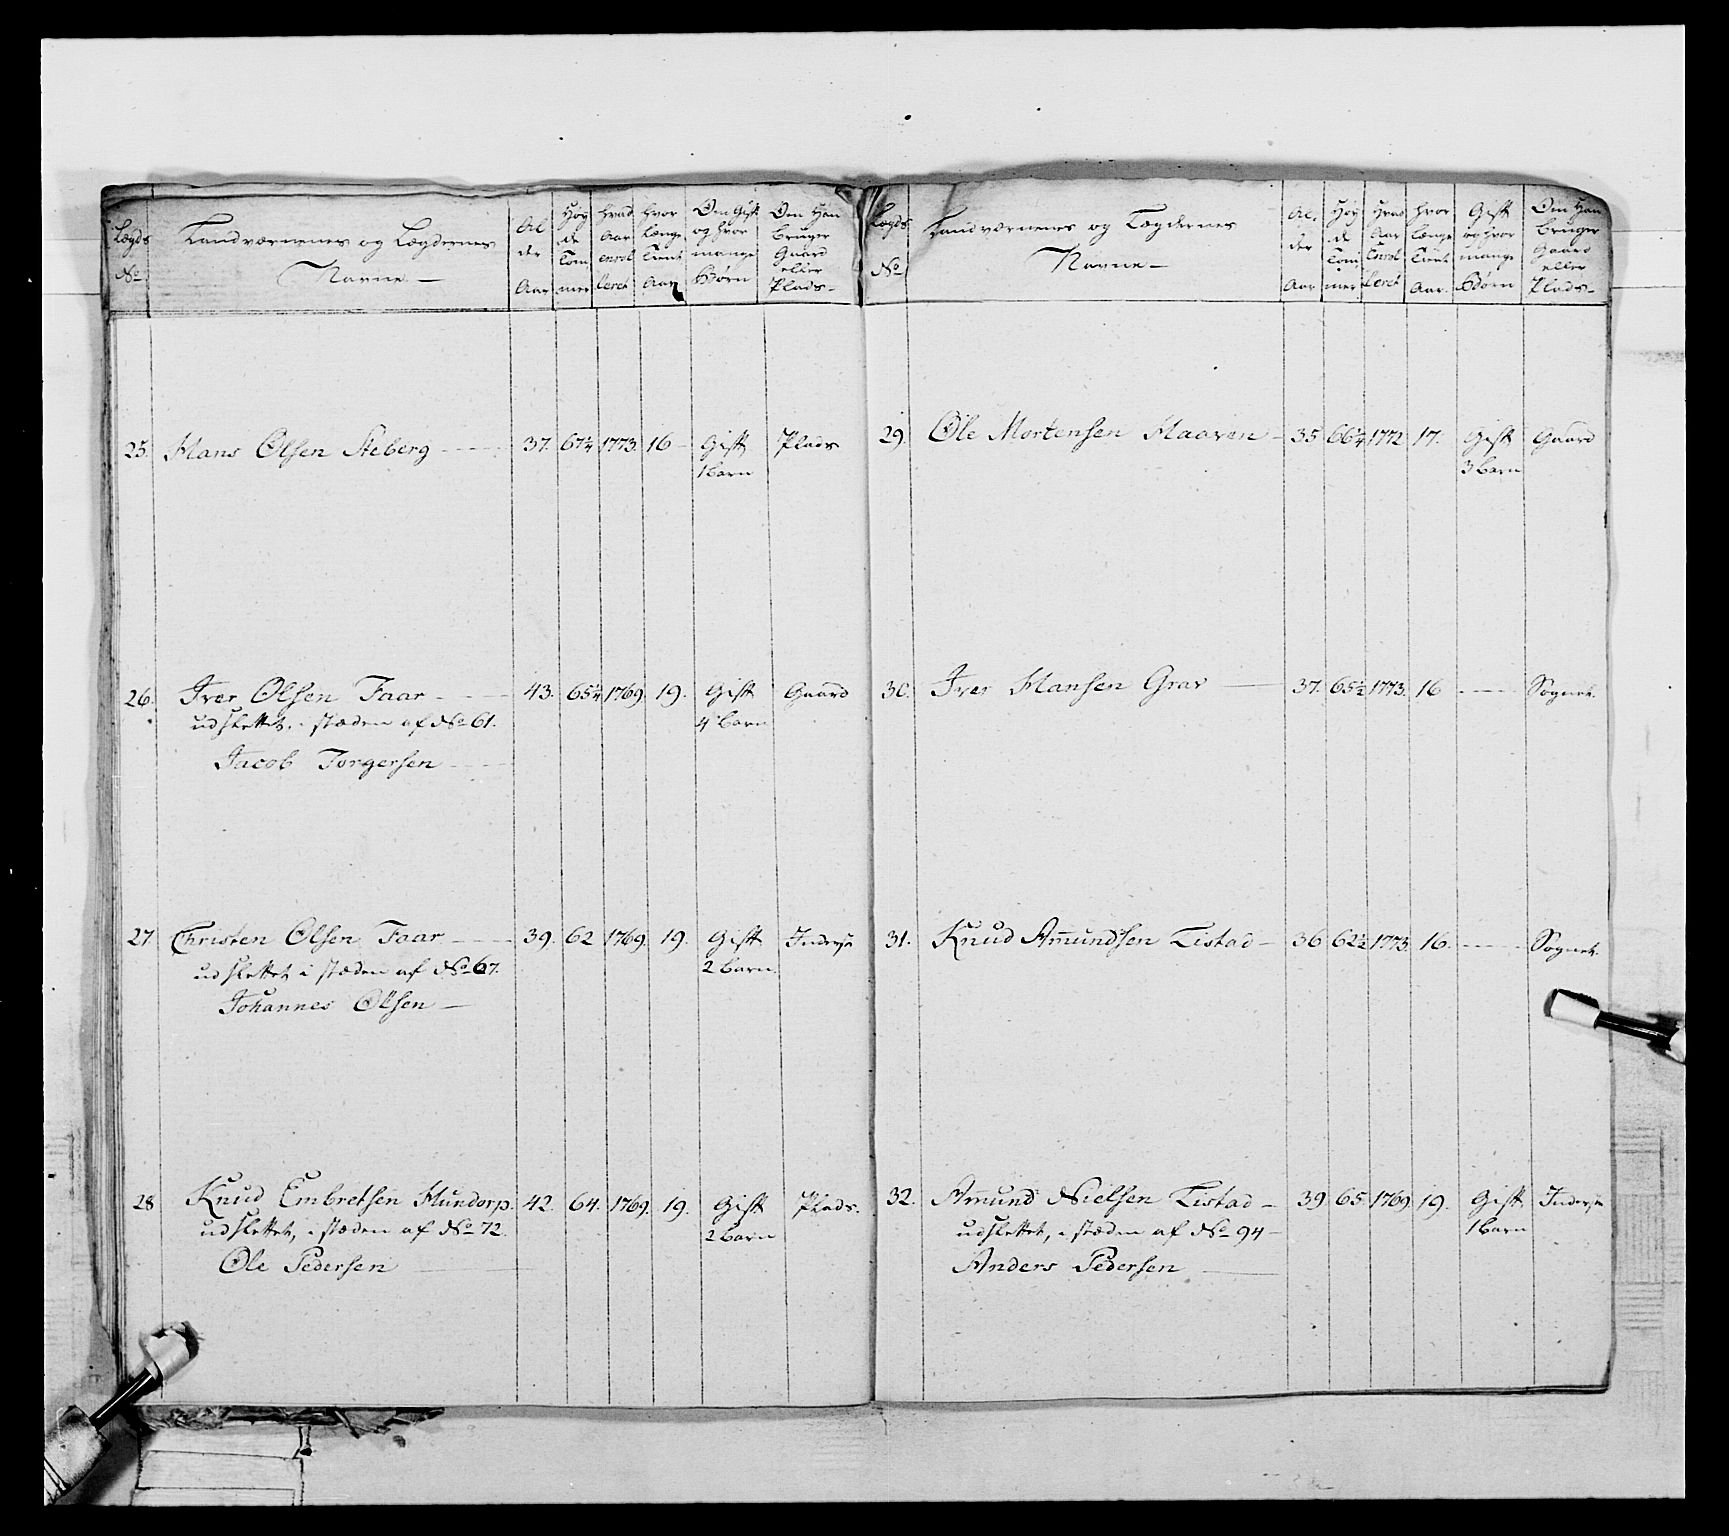 Lægds No
Landværnenes og Lægdernes Navne
Alder Aar
Høyde Tommer
hvad Aar enrolleret
hvor længe tient Aar
Om Gift og hvor mange Børn
Om Han bruger Gaard eller Plads
25. Hans Olsen Steberg 37. 67¼ 1773. 16 Gift Plads
1 Barn
26. Iver Olsen Faar 43. 65¼ 1769. 19. Gift Gaard
udslettet, i stæden af No 61. 4 Barn
Jacob Torgersen
27. Christen Olsen Faar 39. 62 1769. 19. Gift Inderst
udslettet i stæden af No 67. 2 Barn
Johannes Olsen
28 Knud Embretsen Hundorp. 42. 64. 1769. 19. Gift Plads.
udslettet, i stæden af No 72. 2 Barn
Ole Pedersen
Lægds No
Landværnenes og Lægdernes Navne
Alder Aar
Høyde Tommer
Hvad Aar Enrolleret
hvor længe tient Aar.
Gift og hvor mange Børn
Om Han bruger Gaard eller Plads
29. Ole Mortensen Haaven 35 66¼ 1772 17. Gift Gaard
3 Barn
30. Iver Hansen Grav 37. 65½ 1773. 16 Sognet.
31. Knud Amundsen Listad 36 62½ 1773. 16. Sognet.
32. Amund Nielsen Listad 39 65. 1769 19. Gift Inderst
udslettet, i stæden af No 94 1 Barn
Anders Pedersen